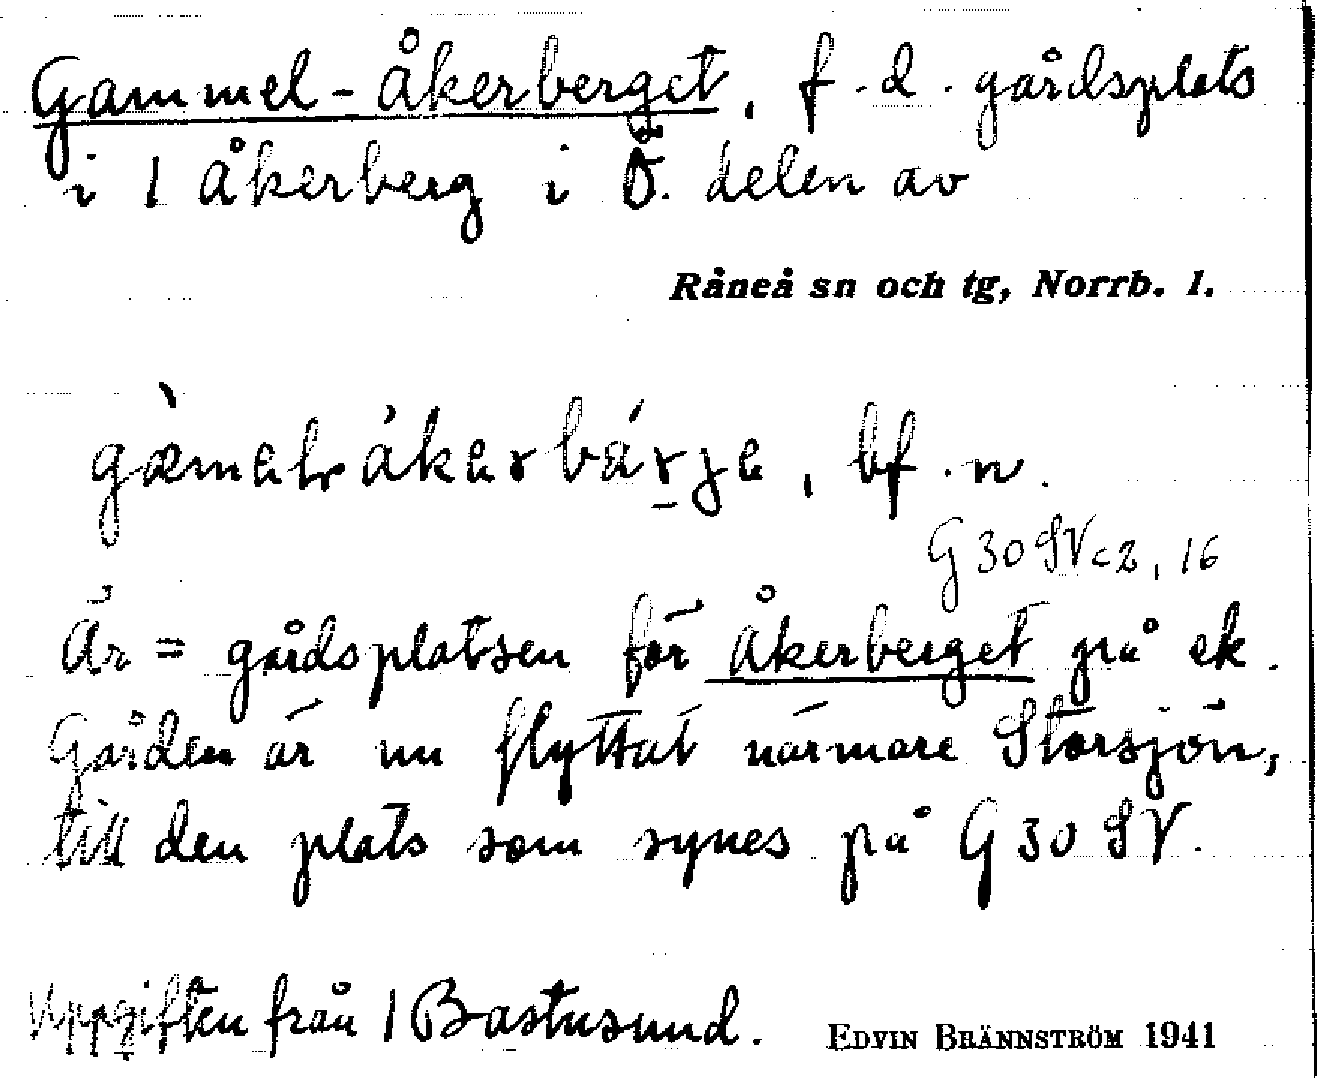 Gammel-Åkerberget, f.d. gårdsplats
i 1 Åkerberg i Ö. delen av
Råneå sn och tg, Norrb. l.
bf. n.
G 30 SV c 2, 16
Är = gårdsplatsen för Åkerberget på ek.
Gården är nu flyttat närmare Storsjön,
till den plats som synes på G 30 SV.
Uppgiften från 1 Bastusund.
EDVIN BRÄNNSTRÖM 1941